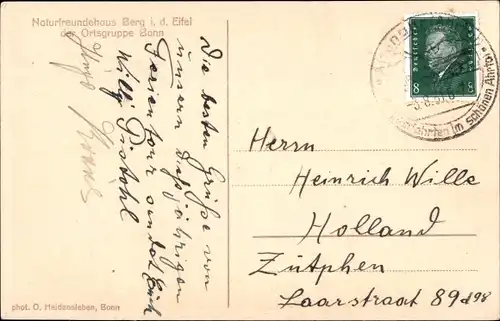 Naturfreundehaus Berg i. d. Eifel
der Ortsgruppe Bonn
Die besten Grüße von
unserer diesjährigen
Ferientour sendet Euch
Willy
Deutsches Reich
8 8
im schönen Ahrtal
Herrn
Heinrich Wille
Holland
Zütphen
Laarstraat 89 d98
phot. O. Heidensleben, Bonn